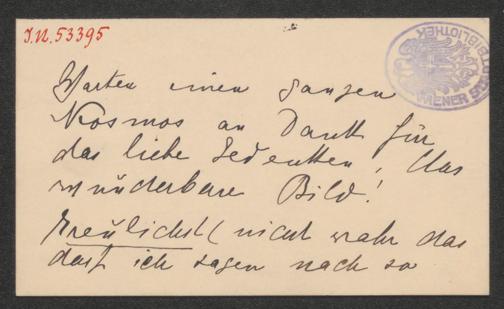 J.N. 53395
WIENER STADTBIBLIOTHEK
einen ganzen
Kosmos an Dank für
das liebe Gedenken, das
wunderbare Bild!
nicht wahr das
darf ich sagen nach so